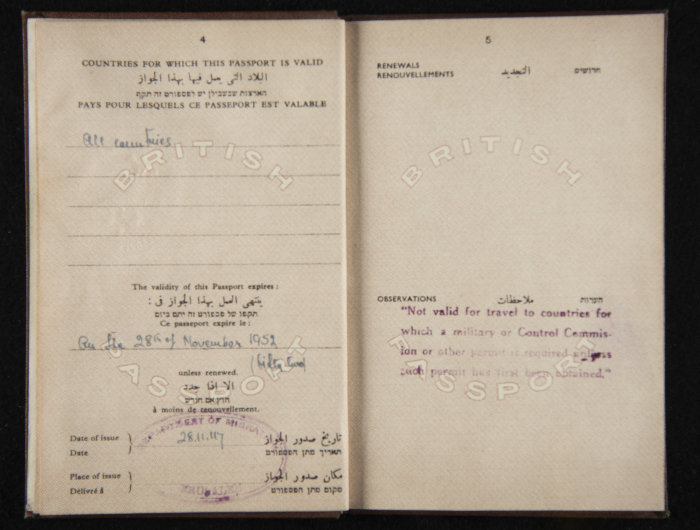 4
COUNTRIES FOR WHICH THIS PASSPORT IS VALID
البلاد التي يعمل فيها بهذا الجواز
הארצות שבשבילן יש לפספורט זה תקף
PAYS POUR LESQUELS CE PASSEPORT EST VALABLE
All countries
BRITISH
The validity of this Passport expires:
ينتهي العمل بهذا الجواز في:
תקפו של פספורט זה יתם ביום
Ce passeport expire le:
On the 28th of November 1952
(fifty two)
PASSPORT
unless renewed.
الا اذا جدد
à moins de renouvellement.
DEPARTMENT OF
Date of issue
28.11.47
تاريخ صدور الجواز
Date
תאריך מתן הפספורט
Place of issue
مكان صدور الجواز
Délivré à
מקום מתן הפספורט
5
RENEWALS
RENOUVELLEMENTS
التجديد
חדושים
BRITISH
OBSERVATIONS
ملاحظات
הערות
"Not valid for travel to countries for
which a military or Control Commis-
ion or other permit is required unless
such permit has first been obtained."
PASSPORT